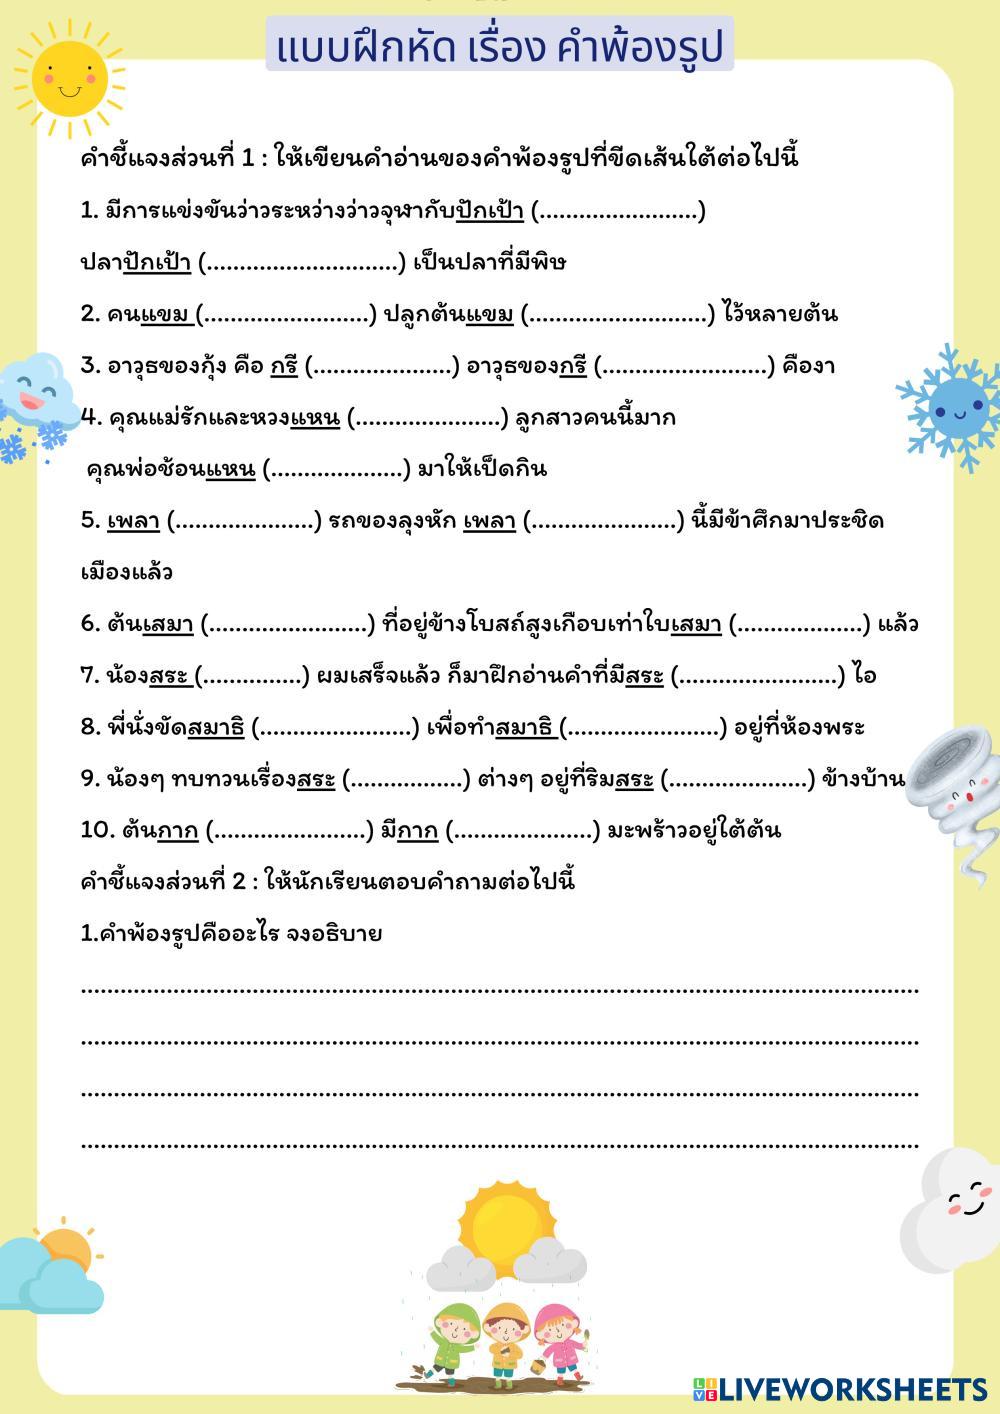 แบบฝึกหัด เรื่อง คำพ้องรูป
คำชี้แจงส่วนที่ 1 : ให้เขียนคำอ่านของคำพ้องรูปที่ขีดเส้นใต้ต่อไปนี้
1. มีการแข่งขันว่าวระหว่างว่าวจุฬากับปักเป้า (........................)
ปลาปักเป้า (.............................) เป็นปลาที่มีพิษ
2. คนแขม (.........................) ปลูกต้นแขม (...........................) ไว้หลายต้น
3. อาวุธของกุ้ง คือ กรี (.....................) อาวุธของกรี (.........................) คืองา
4. คุณแม่รักและหวงแหน (......................) ลูกสาวคนนี้มาก
คุณพ่อช้อนแหน (....................) มาให้เป็ดกิน
5. เพลา (.....................) รถของลุงหัก เพลา (......................) นี้มีข้าศึกมาประชิด
เมืองแล้ว
6. ต้นเสมา (........................) ที่อยู่ข้างโบสถ์สูงเกือบเท่าใบเสมา (...................) แล้ว
7. น้องสระ (...............) ผมเสร็จแล้ว ก็มาฝึกอ่านคำที่มีสระ (........................) ไอ
8. พี่นั่งขัดสมาธิ (.......................) เพื่อทำสมาธิ (.......................) อยู่ที่ห้องพระ
9. น้องๆ ทบทวนเรื่องสระ (.................) ต่างๆ อยู่ที่ริมสระ (.....................) ข้างบ้าน
10. ต้นกาก (.......................) มีกาก (.....................) มะพร้าวอยู่ใต้ต้น
คำชี้แจงส่วนที่ 2 : ให้นักเรียนตอบคำถามต่อไปนี้
1.คำพ้องรูปคืออะไร จงอธิบาย
................................................................................................................................
................................................................................................................................
................................................................................................................................
................................................................................................................................
LIVE LIVEWORKSHEETS